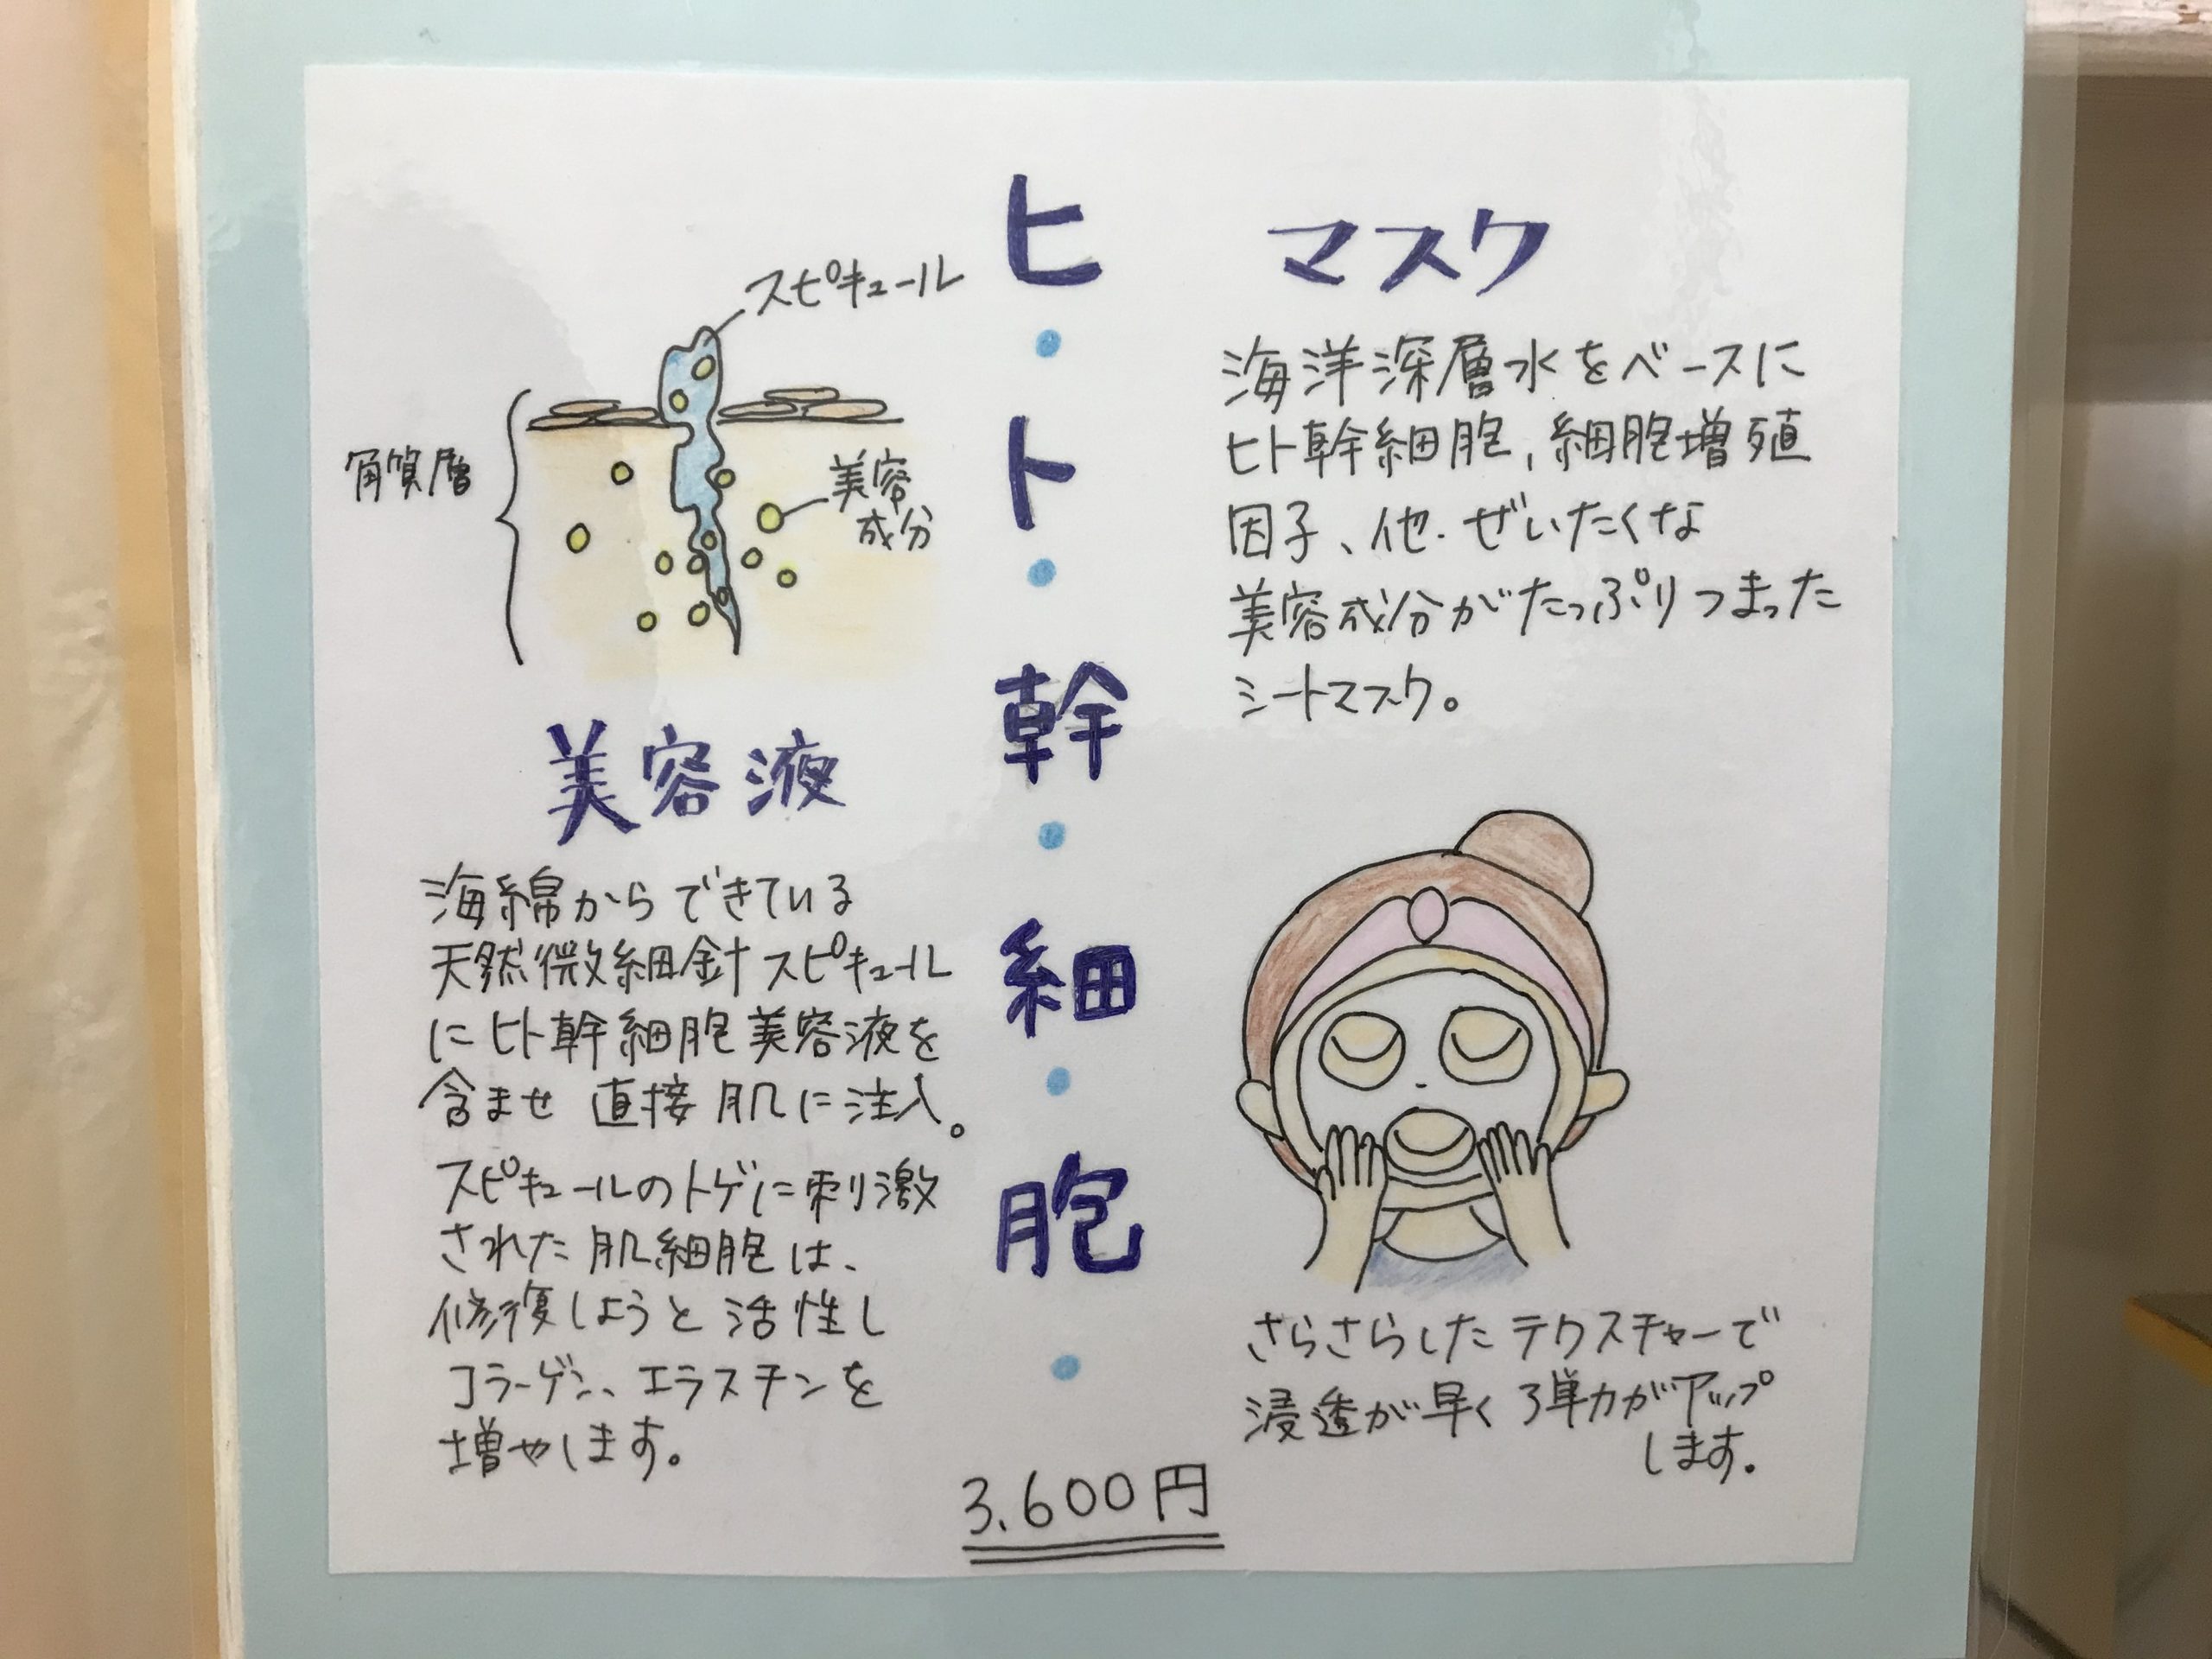 ヒ・ト・幹・細・胞・
マスク
海洋深層水をベースに
ヒト幹細胞、細胞増殖
因子、他.ぜいたくな
美容成分がたっぷりつまった
シートマスク。
さらさらしたテクスチャーで
浸透が早く弾力がアップ
します。
スピキュール
角質層
美容
成分
美容液
海綿からできている
天然微細針スピキュール
にヒト幹細胞美容液を
含ませ 直接肌に注入。
スピキュールのトゲに刺激
された肌細胞は、
修復しようと活性し
コラーゲン、エラスチンを
増やします。
3,600円